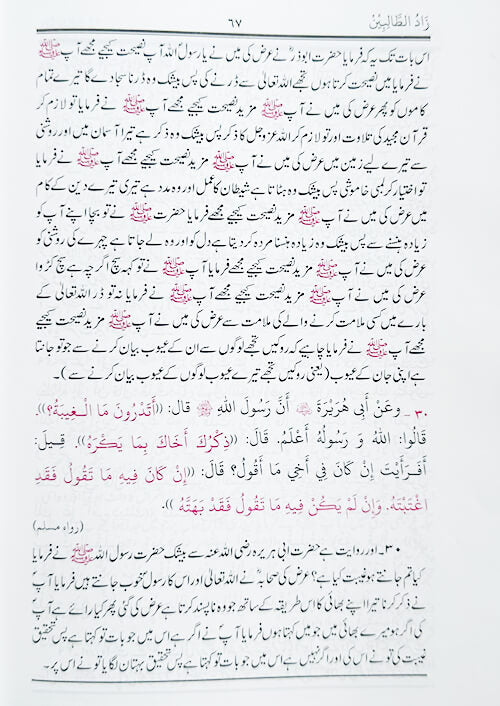 زَادُ الطَّالِبِيْنَ ٦٧
اس بات تک یہ کہ فرمایا حضرت ابوذرؓ نے عرض کی میں نے یا رسول اللہ آپ نصیحت کیجیے مجھے آپ ﷺ
نے فرمایا میں نصیحت کرتا ہوں تجھے اللہ تعالیٰ سے ڈرنے کی پس بیشک وہ ڈرنا سجا دے گا تیرے تمام
کاموں کو پھر عرض کی میں نے آپ ﷺ مزید نصیحت کیجیے مجھے آپ ﷺ نے فرمایا تو لازم کر
قرآن مجید کی تلاوت اور تو لازم کر اللہ عزوجل کا ذکر پس بیشک وہ ذکر ہے تیرا آسمان میں اور روشنی
سے تیرے لیے زمین میں عرض کی میں نے آپ ﷺ مزید نصیحت کیجیے مجھے آپ ﷺ نے فرمایا
تو اختیار کر لمبی خاموشی پس بیشک وہ ہٹاتا ہے شیطان کا عمل اور وہ مدد ہے تیری تیرے دین کے کام
میں عرض کی میں نے آپ ﷺ مزید نصیحت کیجیے مجھے فرمایا حضرت ﷺ نے تو بچا اپنے آپ کو
زیادہ ہنسنے سے پس بیشک وہ زیادہ ہنسنا مردہ کر دیتا ہے دل کو اور وہ لے جاتا ہے چہرے کی روشنی کو
عرض کی میں نے آپ ﷺ مزید نصیحت کیجیے مجھے فرمایا آپ ﷺ نے تو کہہ سچ اگرچہ ہے سچ کڑوا
عرض کی میں نے آپ ﷺ مزید نصیحت کیجیے مجھے آپ ﷺ نے فرمایا نہ تو ڈر اللہ تعالیٰ کے
بارے میں کسی ملامت کرنے والے کی ملامت سے عرض کی میں نے آپ ﷺ مزید نصیحت کیجیے
مجھے آپ ﷺ نے فرمایا چاہیے کہ روکیں تجھے لوگوں سے ان کے عیوب بیان کرنے سے جو تو جانتا
ہے اپنی جان کے عیوب (یعنی روکیں تجھے تیرے عیوب لوگوں کے عیوب بیان کرنے سے)۔
٣٠ ـ وعَنْ أَبِي هُرَيْرَةَ ﷺ أَنَّ رَسُولَ اللهِ ﷺ قال: ((أَتَدْرُونَ مَا الْغِيبَةُ؟)).
قَالُوا: اللهُ وَ رَسُولُهُ أَعْلَمُ. قَالَ: ((ذِكْرُكَ أَخَاكَ بِمَا يَكْرَهُ)). قِيلَ:
أَفَرَأَيْتَ إِنْ كَانَ فِي أَخِي مَا أَقُولُ؟ قَالَ: ((إِنْ كَانَ فِيهِ مَا تَقُولُ فَقَدِ
اغْتَبْتَهُ. وَإِنْ لَمْ يَكُنْ فِيهِ مَا تَقُولُ فَقَدْ بَهَتَّهُ)).
(رواہ مسلم)
۳۰۔ اور روایت ہے حضرت ابی ہریرہ رضی اللہ عنہ سے بیشک حضرت رسول اللہ ﷺ نے فرمایا
کیا تم جانتے ہو غیبت کیا ہے؟ عرض کی صحابہؓ نے اللہ تعالیٰ اور اس کا رسول خوب جانتے ہیں فرمایا آپؐ
نے ذکر کرنا تیرا اپنے بھائی کا اس طریقہ کے ساتھ جو وہ ناپسند کرتا ہے عرض کی گئی پھر کیا رائے ہے آپؐ
کی اگر ہو میرے بھائی میں جو میں کہتا ہوں فرمایا آپؐ نے اگر ہے اس میں جو بات تو کہتا ہے پس تحقیق
غیبت کی تو نے اس کی اور اگر نہیں ہے اس میں جو بات تو کہتا ہے پس تحقیق بہتان لگایا تو نے اس پر۔